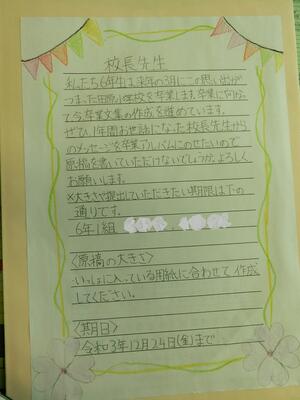 校長先生
私たち6年生は、来年の3月にこの思い出が
つまった田原小学校を卒業します。卒業に向け
て今卒業文集の作成を進めています。
ぜひ、1年間お世話になった校長先生から
のメッセージを卒業アルバムにのせたいので
原稿を書いていただけないでしょうか。よろしく
お願いします。
※大きさや提出していただきたい期限は下の
通りです。
6年1組
〈原稿の大きさ〉
いっしょに入っている用紙に合わせて作成
してください。
〈期日〉
令和3年12月24日(金)まで